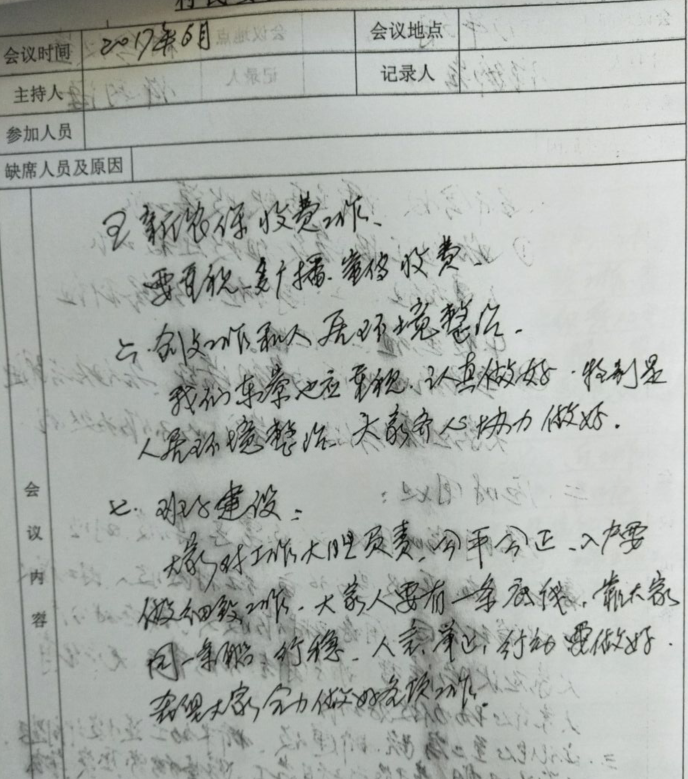 会议时间 2017年6月 会议地点
主持人 记录人
参加人员
缺席人员及原因
会议内容
五 新农保收费工作、
要重视、多广播、宣传收费、
六、创文工作和人居环境整治.
我们东景也应重视、认真做好.特别是
人居环境整治、大家齐心协力做好.
七、班子建设:
大家对工作大胆负责、公平公正、入户要
做细致工作、大家人要有一条底线、靠大家
同一条船、行稳、人言、举止、行动要做好.
希望大家合力做好各项工作。